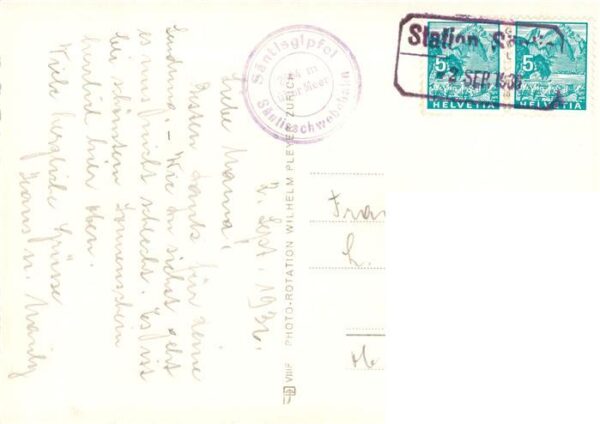 2. Sept. 1936.
Liebe Mama!
Besten Dank für deine
Sendung. - Wie du siehst geht
es uns nicht schlecht. Es ist
bei schönstem Sonnenschein
herrlich hier oben.
Viele herzliche Grüsse
Hans u.
Säntisgipfel
m
über Meer
Säntisschwebebahn
Station
2. SEP. 1936
5
HELVETIA
5
HELVETIA
VIIIF PHOTO-ROTATION WILHELM PLEYER ZÜRICH